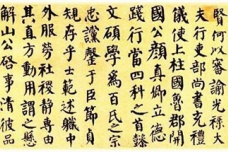 賢何以審諭光祿大
夫行吏部尚書充禮
儀使上柱國魯郡開
國公顏真卿立德
踐行當四科之首懿
文碩學為百氏之宗
忠讜罄于臣節貞
規存乎士範述職中
外服勞社稷靜專由
其直方動用謂之懸
解山公啓事清彼品